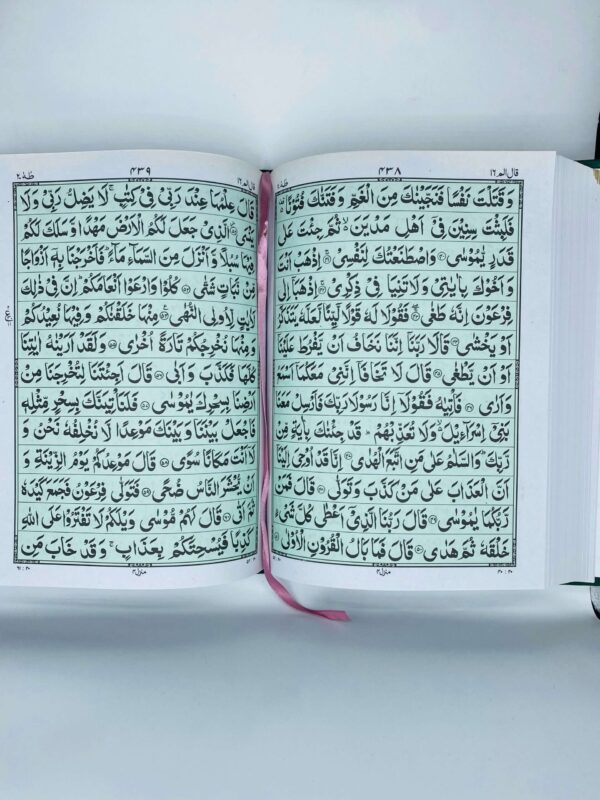 قال الم ۱۶ ۴۳۸ طٰهٰ ۲۰
وَقَتَلْتَ نَفْسًا فَنَجَّيْنٰكَ مِنَ الْغَمِّ وَفَتَنّٰكَ فُتُوْنًا
فَلَبِثْتَ سِنِيْنَ فِيْٓ اَهْلِ مَدْيَنَ ۙ ثُمَّ جِئْتَ عَلٰى
قَدَرٍ يّٰمُوْسٰى ﴿۴۰﴾ وَاصْطَنَعْتُكَ لِنَفْسِيْ ﴿۴۱﴾ اِذْهَبْ اَنْتَ
وَاَخُوْكَ بِاٰيٰتِيْ وَلَا تَنِيَا فِيْ ذِكْرِيْ ﴿۴۲﴾ اِذْهَبَآ اِلٰى
فِرْعَوْنَ اِنَّهٗ طَغٰى ﴿۴۳﴾ فَقُوْلَا لَهٗ قَوْلًا لَّيِّنًا لَّعَلَّهٗ يَتَذَكَّرُ
اَوْ يَخْشٰى ﴿۴۴﴾ قَالَا رَبَّنَآ اِنَّنَا نَخَافُ اَنْ يَّفْرُطَ عَلَيْنَآ
اَوْ اَنْ يَّطْغٰى ﴿۴۵﴾ قَالَ لَا تَخَافَآ اِنَّنِيْ مَعَكُمَآ اَسْمَعُ
وَاَرٰى ﴿۴۶﴾ فَاْتِيٰهُ فَقُوْلَآ اِنَّا رَسُوْلَا رَبِّكَ فَاَرْسِلْ مَعَنَا
بَنِيْٓ اِسْرَآءِيْلَ ۙ وَلَا تُعَذِّبْهُمْ ؕ قَدْ جِئْنٰكَ بِاٰيَةٍ مِّنْ
رَّبِّكَ ؕ وَالسَّلٰمُ عَلٰى مَنِ اتَّبَعَ الْهُدٰى ﴿۴۷﴾ اِنَّا قَدْ اُوْحِيَ اِلَيْنَآ
اَنَّ الْعَذَابَ عَلٰى مَنْ كَذَّبَ وَتَوَلّٰى ﴿۴۸﴾ قَالَ فَمَنْ
رَّبُّكُمَا يٰمُوْسٰى ﴿۴۹﴾ قَالَ رَبُّنَا الَّذِيْٓ اَعْطٰى كُلَّ شَيْءٍ
خَلْقَهٗ ثُمَّ هَدٰى ﴿۵۰﴾ قَالَ فَمَا بَالُ الْقُرُوْنِ الْاُوْلٰى ﴿۵۱﴾
منزل ۴
قال الم ۱۶ ۴۳۹ طٰهٰ ۲۰
قَالَ عِلْمُهَا عِنْدَ رَبِّيْ فِيْ كِتٰبٍ ۚ لَا يَضِلُّ رَبِّيْ وَلَا
يَنْسَى ﴿۵۲﴾ الَّذِيْ جَعَلَ لَكُمُ الْاَرْضَ مَهْدًا وَّسَلَكَ لَكُمْ
فِيْهَا سُبُلًا وَّاَنْزَلَ مِنَ السَّمَآءِ مَآءً ؕ فَاَخْرَجْنَا بِهٖٓ اَزْوَاجًا
مِّنْ نَّبَاتٍ شَتّٰى ﴿۵۳﴾ كُلُوْا وَارْعَوْا اَنْعَامَكُمْ ؕ اِنَّ فِيْ ذٰلِكَ
لَاٰيٰتٍ لِّاُولِي النُّهٰى ﴿۵۴﴾ مِنْهَا خَلَقْنٰكُمْ وَفِيْهَا نُعِيْدُكُمْ
وَمِنْهَا نُخْرِجُكُمْ تَارَةً اُخْرٰى ﴿۵۵﴾ وَلَقَدْ اَرَيْنٰهُ اٰيٰتِنَا
كُلَّهَا فَكَذَّبَ وَاَبٰى ﴿۵۶﴾ قَالَ اَجِئْتَنَا لِتُخْرِجَنَا مِنْ
اَرْضِنَا بِسِحْرِكَ يٰمُوْسٰى ﴿۵۷﴾ فَلَنَاْتِيَنَّكَ بِسِحْرٍ مِّثْلِهٖ
فَاجْعَلْ بَيْنَنَا وَبَيْنَكَ مَوْعِدًا لَّا نُخْلِفُهٗ نَحْنُ وَ
لَآ اَنْتَ مَكَانًا سُوًى ﴿۵۸﴾ قَالَ مَوْعِدُكُمْ يَوْمُ الزِّيْنَةِ وَ
اَنْ يُّحْشَرَ النَّاسُ ضُحًى ﴿۵۹﴾ فَتَوَلّٰى فِرْعَوْنُ فَجَمَعَ كَيْدَهٗ
ثُمَّ اَتٰى ﴿۶۰﴾ قَالَ لَهُمْ مُّوْسٰى وَيْلَكُمْ لَا تَفْتَرُوْا عَلَى اللّٰهِ
كَذِبًا فَيُسْحِتَكُمْ بِعَذَابٍ ۚ وَقَدْ خَابَ مَنِ
منزل ۴